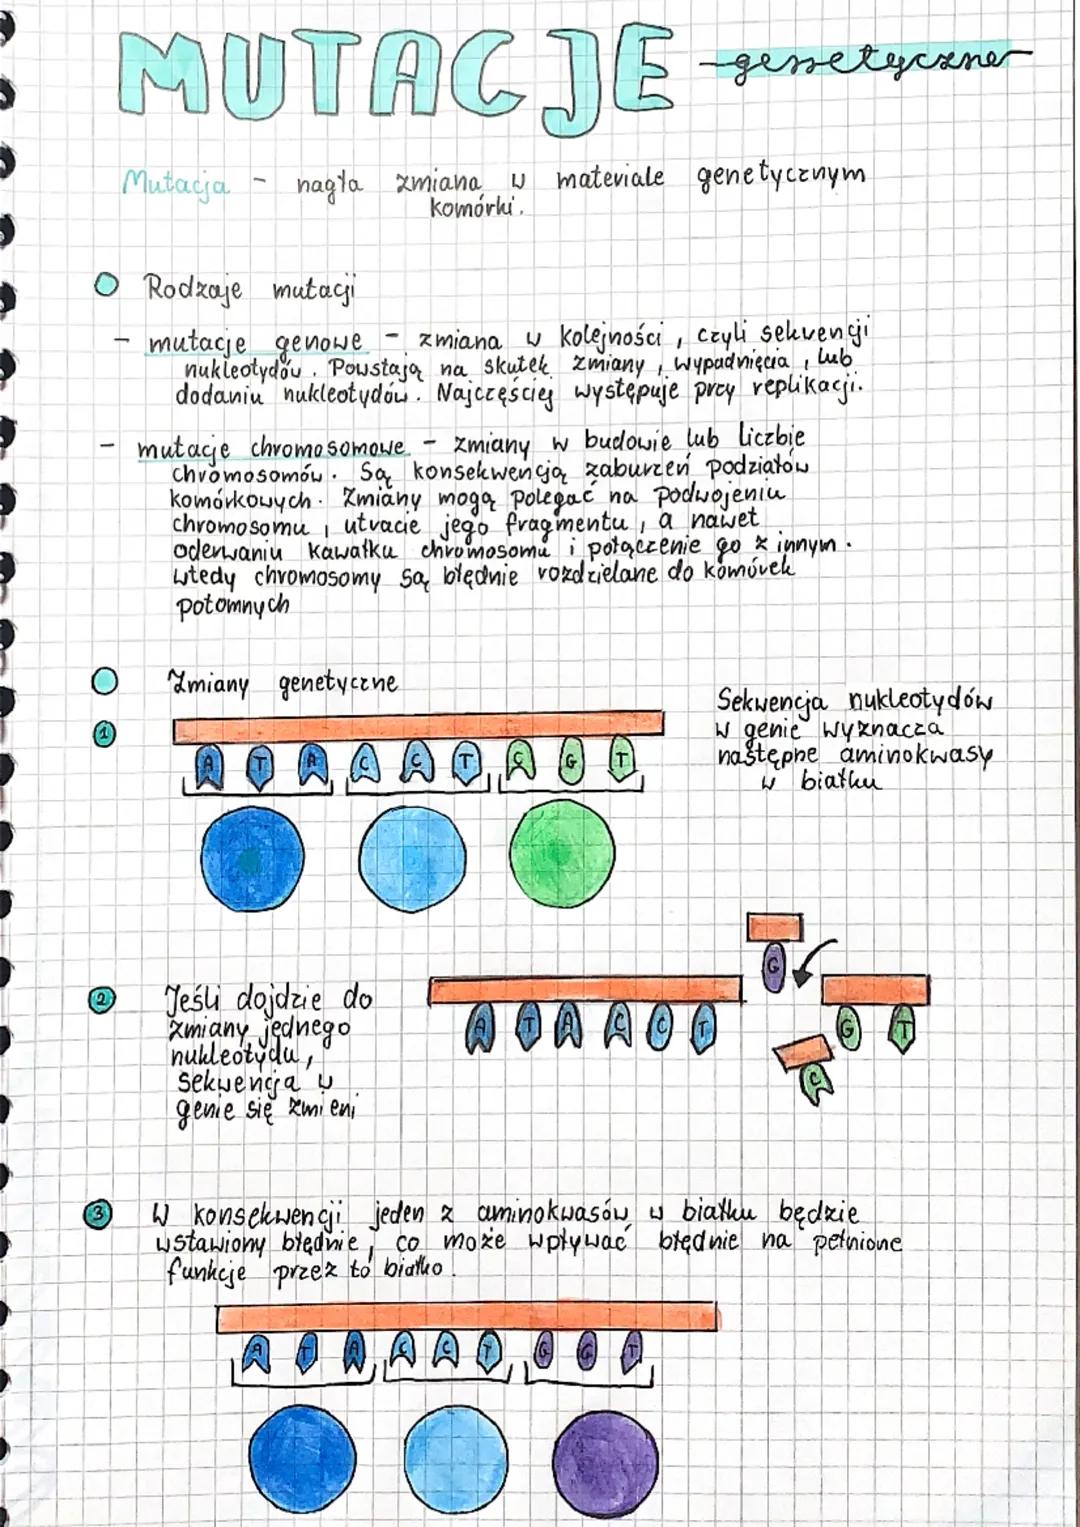 MUTACJE genetyczne
Mutacja - nagła zmiana w materiale genetycznym
komórki.
Rodzaje mutacji
- mutacje genowe - zmiana w kolejności, czyli sekwencji
nukleotydów. Powstają na skutek zmiany, wypadnięcia, lub
dodaniu nukleotydów. Najczęściej występuje przy replikacji.
- mutacje chromosomowe - zmiany w budowie lub liczbie
chromosomów. Są konsekwencją zaburzeń podziałów
komórkowych. Zmiany mogą polegać na podwojeniu
chromosomu, utracie jego fragmentu, a nawet
oderwaniu kawałku chromosomu i połączenie go z innym.
Wtedy chromosomy są błędnie rozdzielane do komórek
potomnych
Zmiany genetyczne
1
A T A C C T C G T
Sekwencja nukleotydów
w genie wyznacza
następne aminokwasy
w białku
2
Jeśli dojdzie do
zmiany jednego
nukleotydu,
sekwencja w
genie się zmieni
G
A T A C C T G T
C
3 W konsekwencji jeden z aminokwasów w białku będzie
wstawiony błędnie, co może wpływać błędnie na pełnione
funkcje przez to białko.
A T A C C T G G T